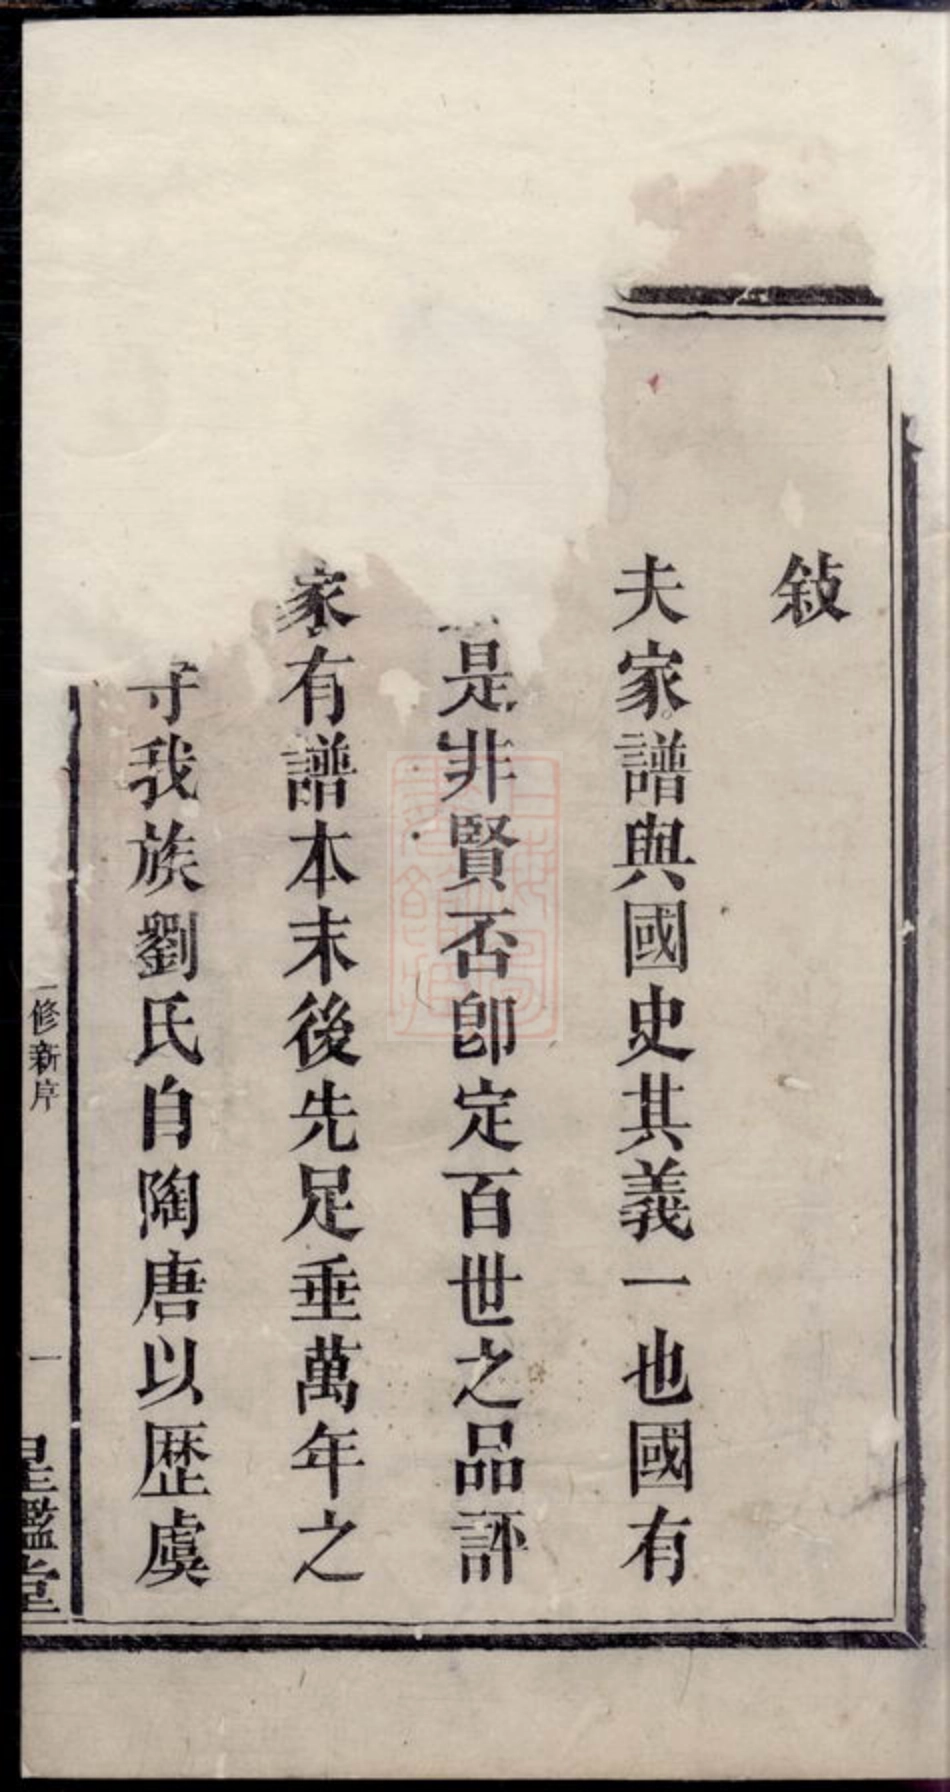 敍
夫家譜與國史其義一也國有
是非賢否卽定百世之品評
家有譜本末後先足垂萬年之
守我族劉氏自陶唐以歷虞
修新序
一
星鑑堂